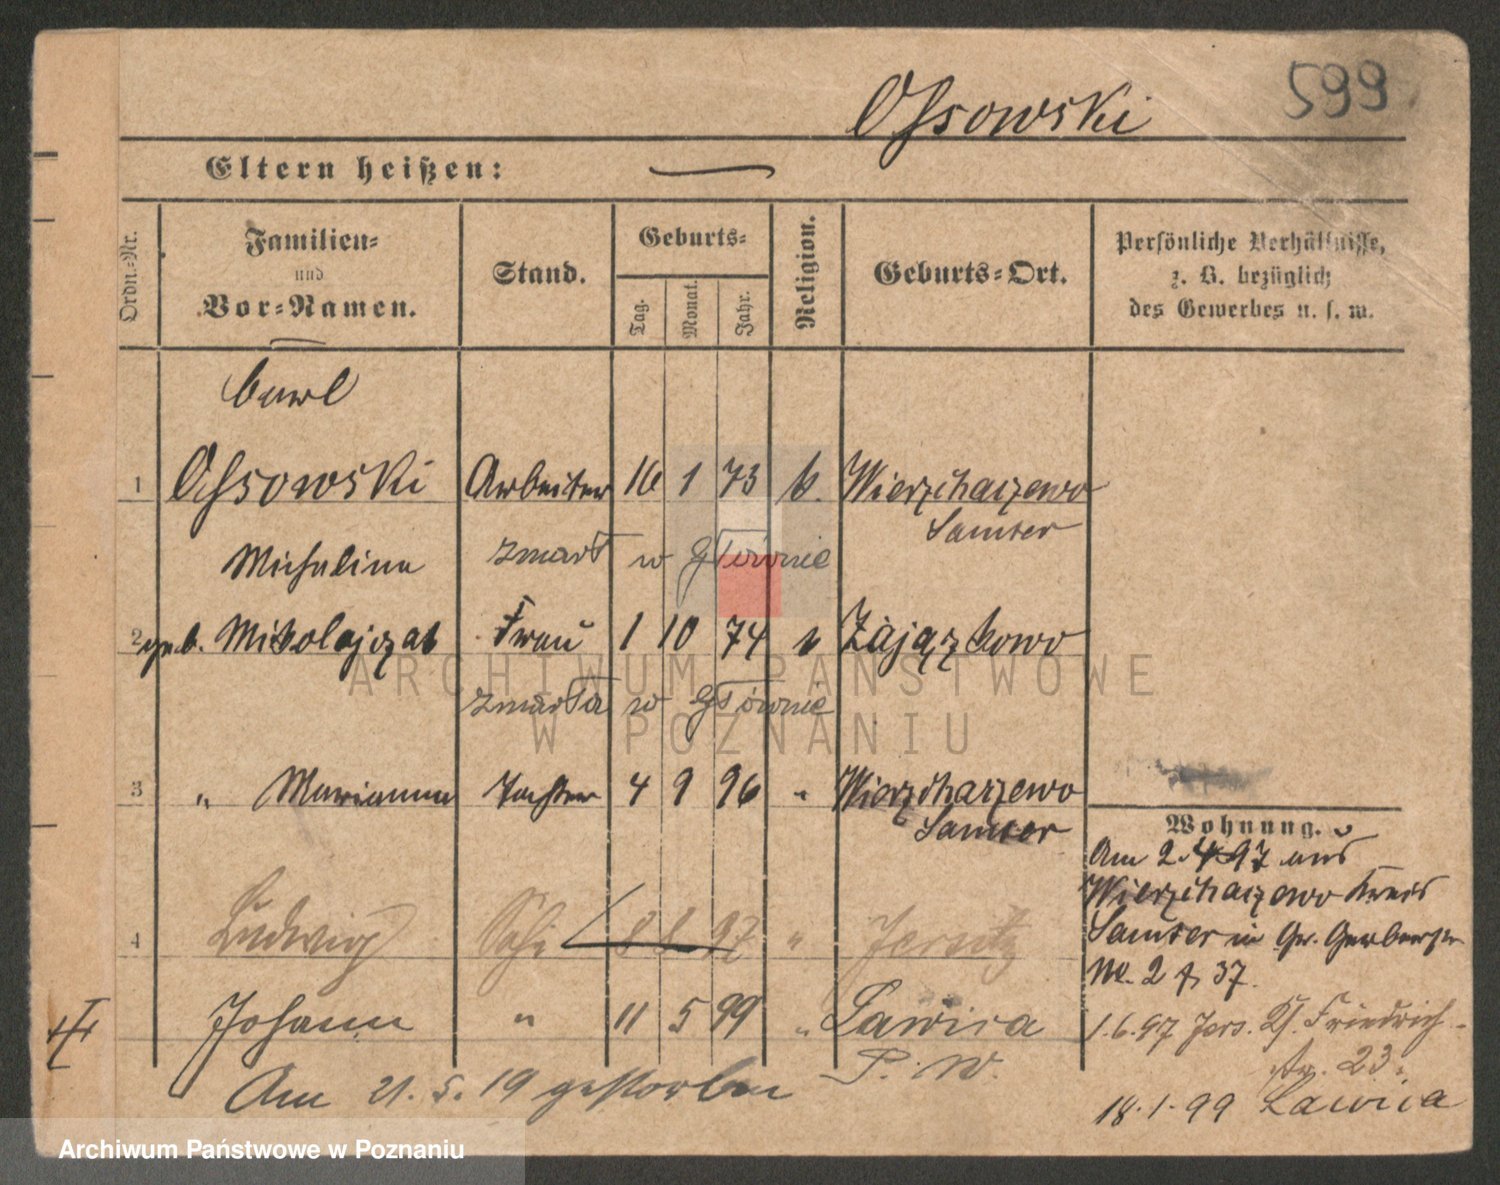 599
Ossowski
Eltern heißen: —
Ordn.-Nr.
Familien-
und
Vor-Namen.
Stand.
Geburts-
Tag. Monat. Jahr.
Religion.
Geburts-Ort.
Persönliche Verhältnisse,
z. B. bezüglich
des Gewerbes u. s. w.
Carl
1 Ossowski Arbeiter 16 1 73 k. Wierzchaczewo
Samter
Michalina zmarł w Głównie
2 geb. Mikolajczak Frau 1 10 74 k Zajączkowo
zmarła w Głównie
3 " Marianna Tochter 4 9 96 " Wierzchaczewo
Samter
4 Ludwig 8 8 97 " Jersitz
Johann " 11 5 99 " Lawica
P. W.
Am 21. 5. 19 gestorben
Wohnung.
Am 2.4 97 aus
Wierzchaczewo Kreis
Samter in Gr. Gerberstr
No. 2 37.
1.6.97 Jers. Friedrich-
str. 23.
18.1.99 Lawica
ARCHIWUM PAŃSTWOWE
W POZNANIU
Archiwum Państwowe w Poznaniu